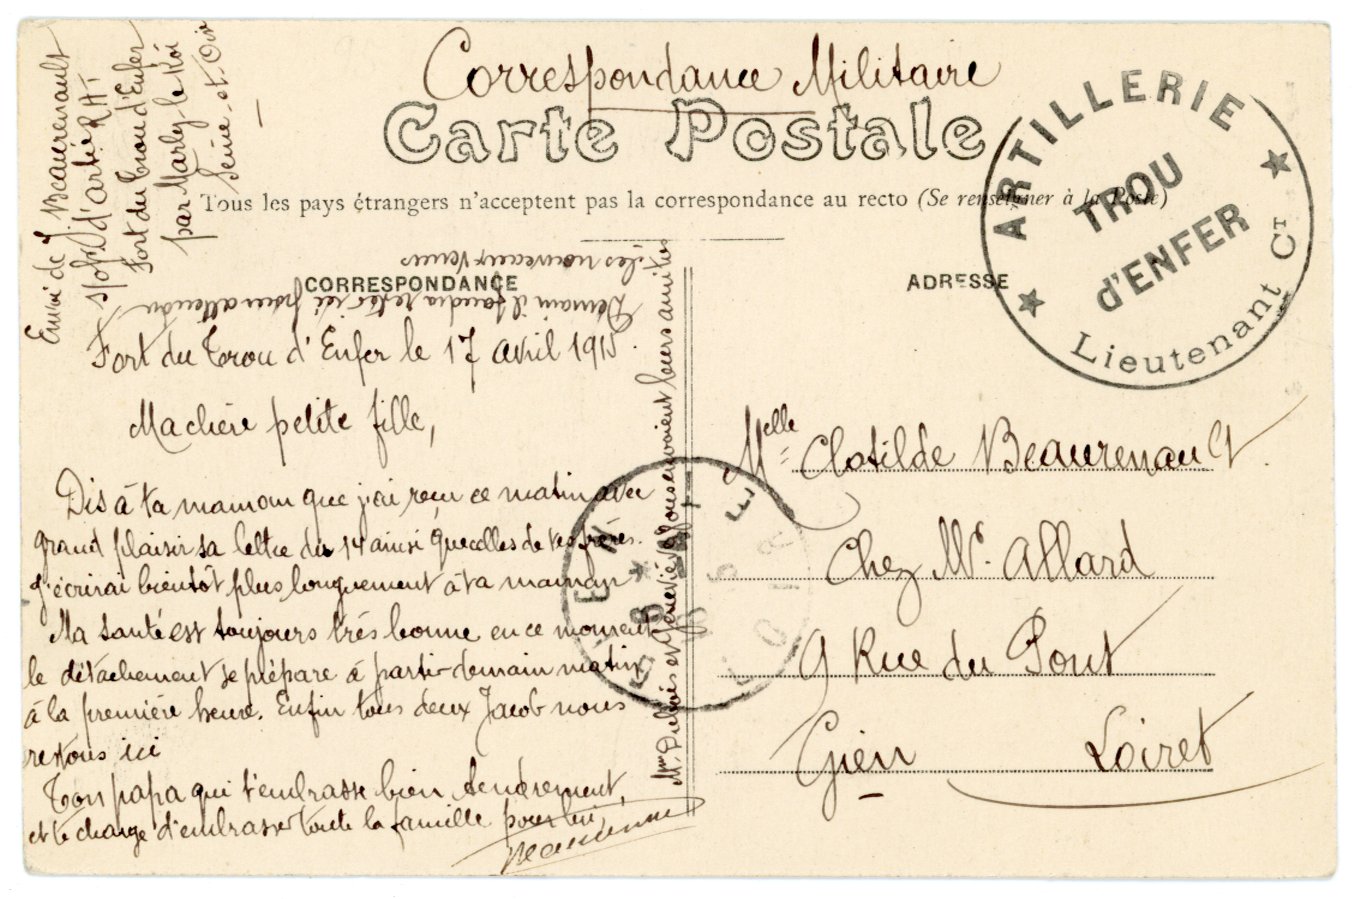 Correspondance Militaire
Carte Postale
Tous les pays étrangers n'acceptent pas la correspondance au recto (Se renseigner à la Poste)
CORRESPONDANCE
ADRESSE
ARTILLERIE
TROU
d'ENFER
Lieutenant Ct
Envoi de J. Beaurenault
d'artie RAT
Fort du trou d'Enfer
par Marly le Roi
Seine-et-Oise
Fort du Trou d'Enfer le 17 avril 1915.
Ma chère petite fille,
Dis à ta maman que j'ai reçu ce matin avec
grand plaisir sa lettre du 14 ainsi que celles de tes frères.
J'écrirai bientôt plus longuement à ta maman
Ma santé est toujours très bonne en ce moment
le détachement se prépare à partir demain matin
à la première heure. Enfin tous deux Jacob nous
restons ici
Ton papa qui t'embrasse bien tendrement,
et te charge d'embrasser toute la famille pour lui,
Beaurenault
Demain il faudra rester ici pour attendre
les nouveaux venus
Mme Dubois et Geneviève vous envoient leurs amitiés
Melle Clotilde Beaurenault
Chez Mr. Allard
9 Rue du Pont
Gien Loiret
GIEN
LOIRET